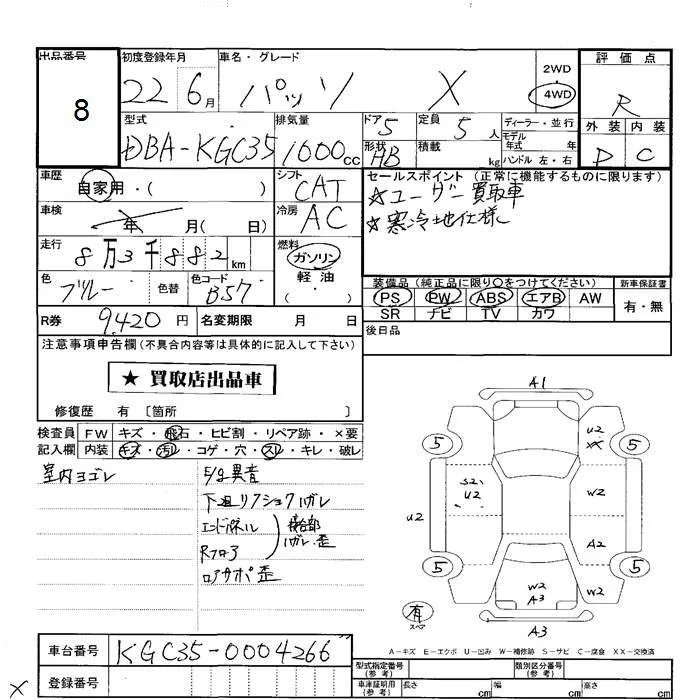 出品番号 8
初度登録年月 22 6月
車名・グレード パッソ X
2WD
4WD
評価点 R
外装 内装
D C
型式 DBA-KGC35
排気量 1000cc
ドア 5
形状 HB
定員 5人
積載 kg
ディーラー・並行
モデル年式 年
ハンドル 左・右
車歴 自家用・( )
シフト CAT
車検 年 月( 日)
冷房 AC
走行 8万3千882km
燃料 ガソリン
軽油
・( )
色 ブルー 色替 色コード B57
R券 9,420円 名変期限 月 日
セールスポイント (正常に機能するものに限ります)
☆ユーザー買取車
☆寒冷地仕様
装備品(純正品に限り○をつけてください)
新車保証書
PS PW ABS エアB AW
SR ナビ TV カワ
有・無
後日品
注意事項申告欄(不具合内容等は具体的に記入して下さい)
★ 買取店出品車
修復歴 有 〔箇所 〕
検査員 FW キズ・飛石・ヒビ割・リペア跡・×要
記入欄 内装 キズ・汚レ・コゲ・穴・スレ・キレ・破レ
室内ヨゴレ
異音
下廻リアショクハガレ
接合部
ハガレ・歪
ロアサポ歪
A1
U2
5 5
S2
U2
W2
U2
A2
5 5
W2
A3
W2
有
スペア
A3
A−キズ E−エクボ U−凹み W−補修跡 S−サビ C−腐食 XX−交換済
車台番号 KGC35-0004266
登録番号
型式指定番号(参考)
類別区分番号(参考)
車庫証明用(参考) 長さ cm 幅 cm 高さ cm